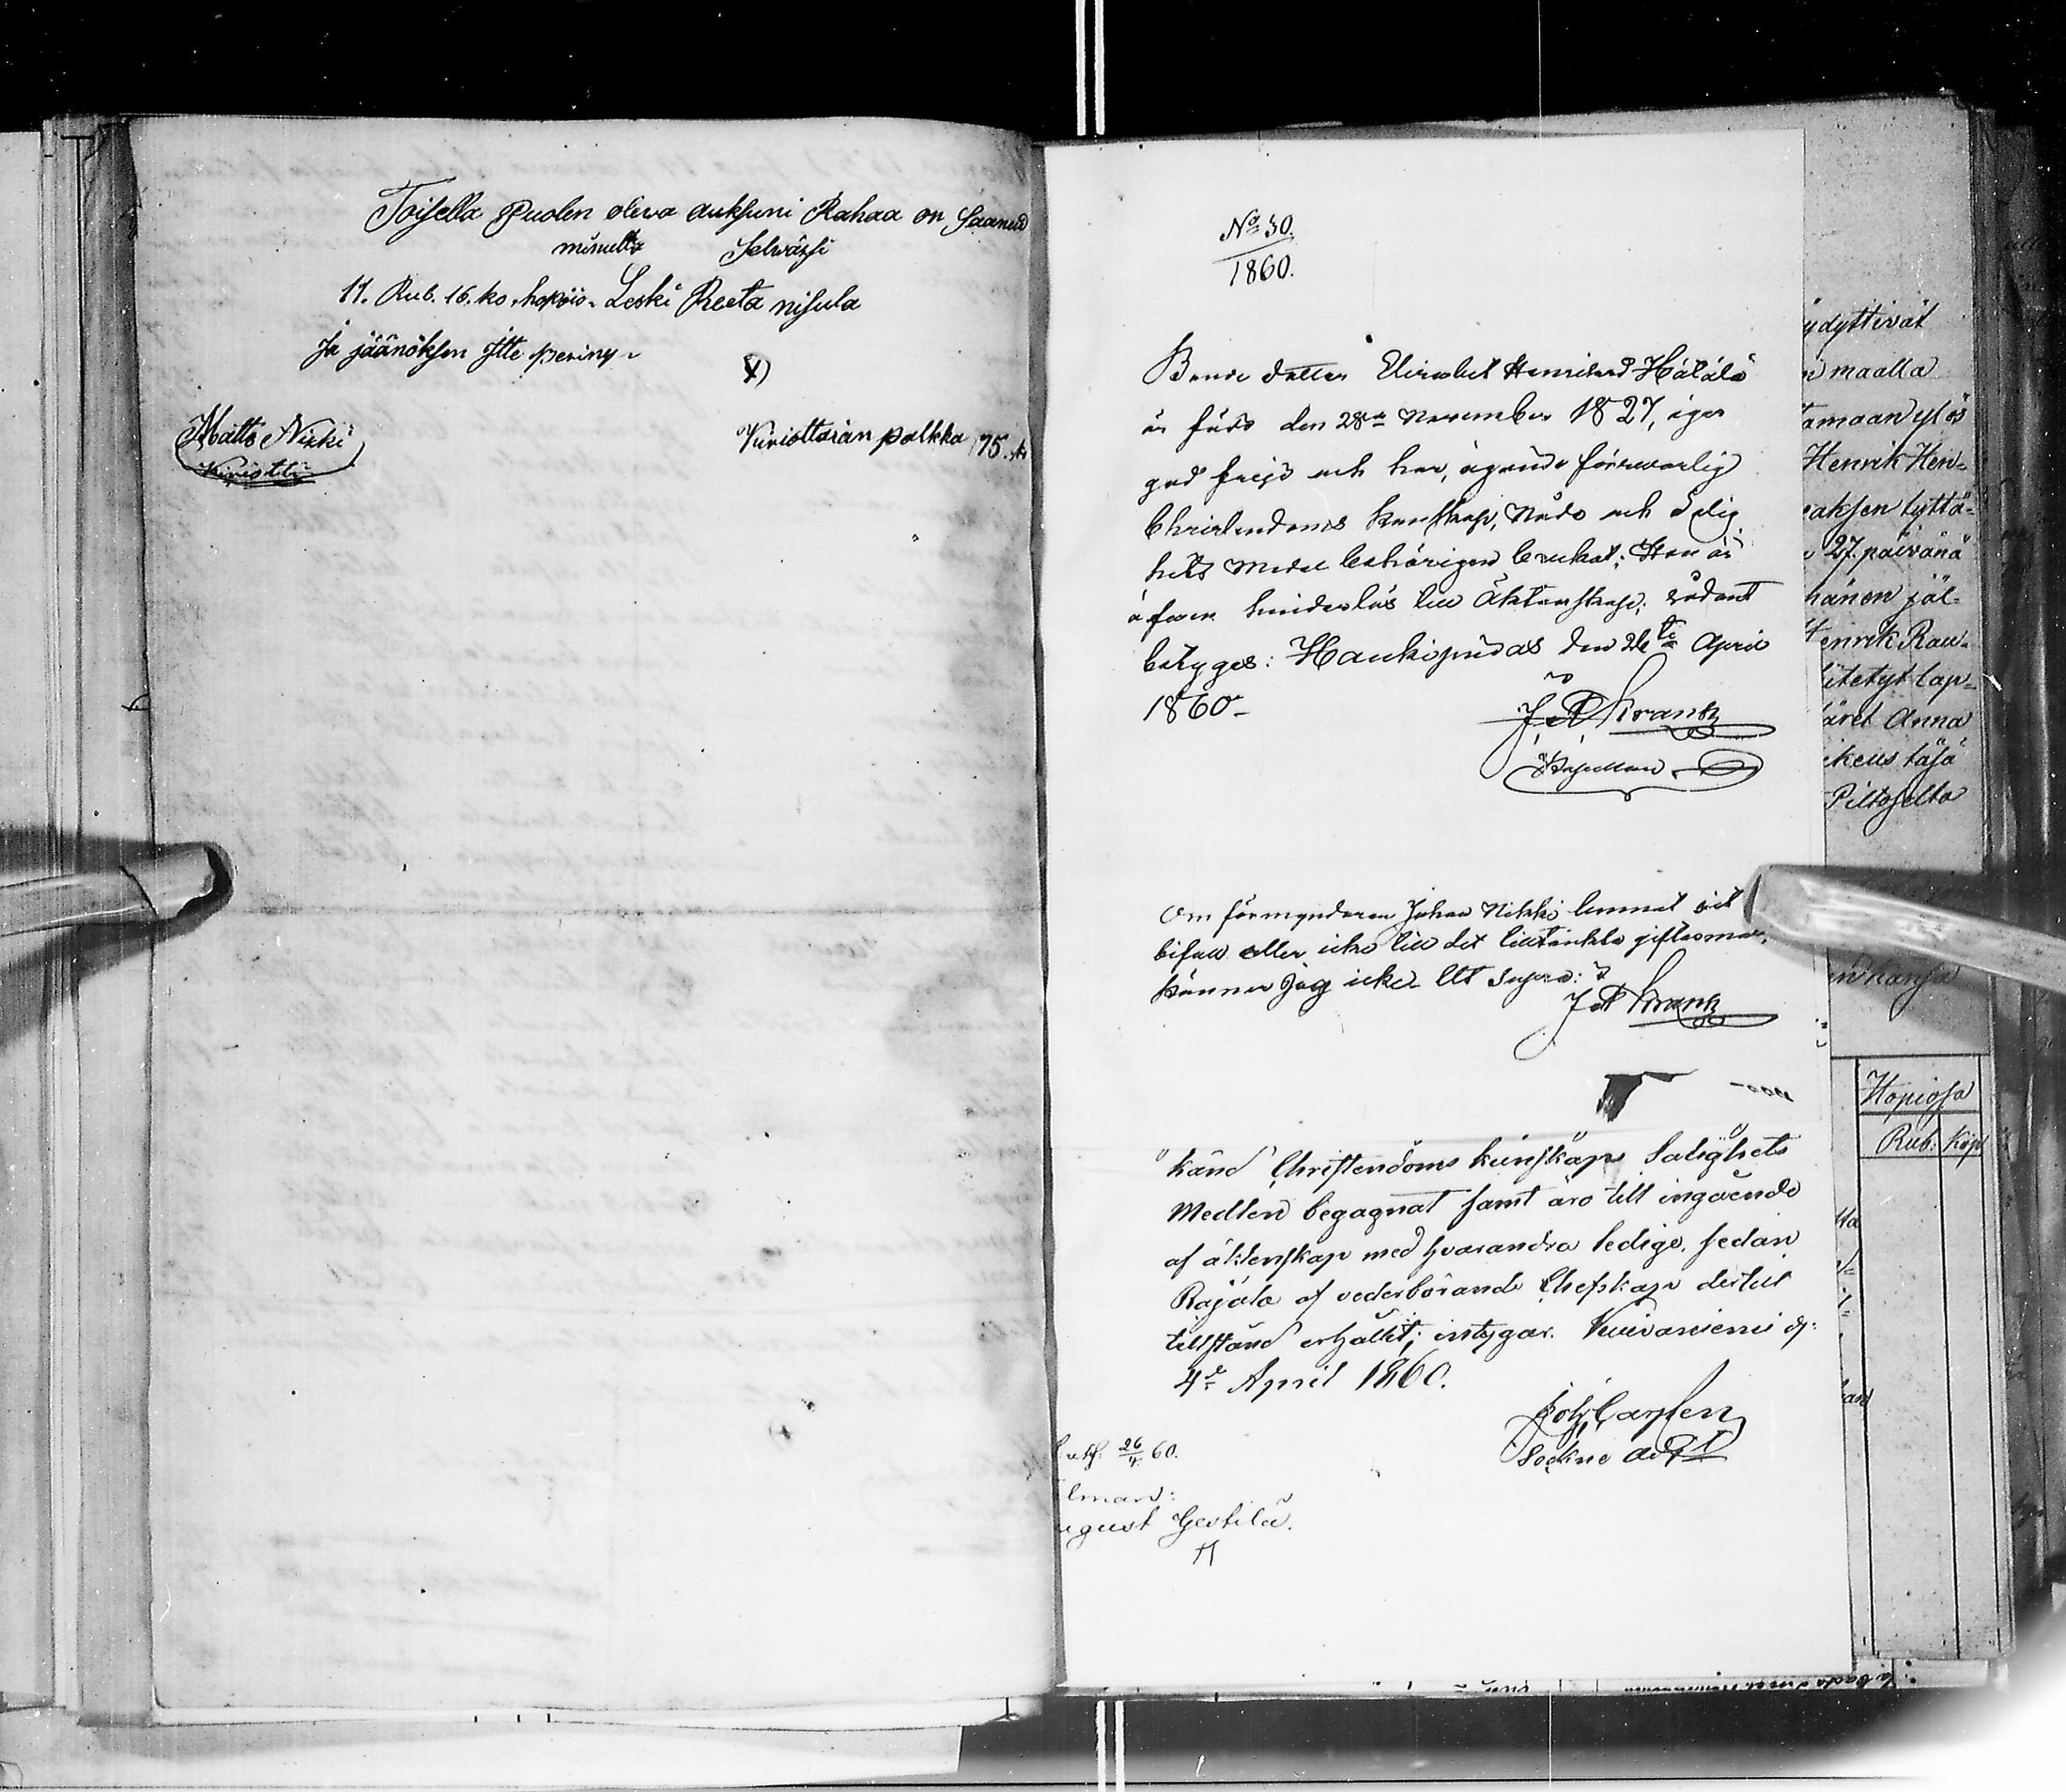 Toisella Puolen oleva auksuni Rahaa on Saanud
minulta Selwäksi
11. Rub. 16. ko. hopiio. Leski Reeta nisula
ja jäänöksen Itte periny.
V)
Matts Nikki
Viriottarian palkka 75. k
Kiriotti
No 30.
1860.
Bonde dotter Elisabet Henriksd Hätälä
är född den 28de November 1827, eger
god frejd och har, ägande försvarlig
Christendoms kunskap, Nådo och Salig
hets Medel behörigen brukat; Hon är
äfven hinderlös till Äktenskap; sådant
betyges: Haukipudas den 26te April
1860.
J A Krank
Kapellan
Om förmyndaren Johan Nikki lemnat sit
bifall eller icke till det tilltänkta giftermål,
känner jag icke. Ut Supra:
J A Krank
känd Christendoms kunskap Salighets
Medlen begagnat samt äro till ingående
af äktenskap med hvarandra ledige, sedan
Rajala af vederbörande Chefskap dertill
tillstånd erhållit; intygar. Kuivaniemi d:
4de April 1860.
Joh Carlsen
Sockne adj
26/4 60.
lman:
ugust Gestilä.
ydyttivät
maalla
amaan ylös
Henrik Hen-
aksen tyttä-
27. päivänä
hänen jäl-
Henrik Rau-
itetyt lap-
äret Anna
ikeus täsä
Piltaselta
kansa
Hopiosa
Rub. Kop